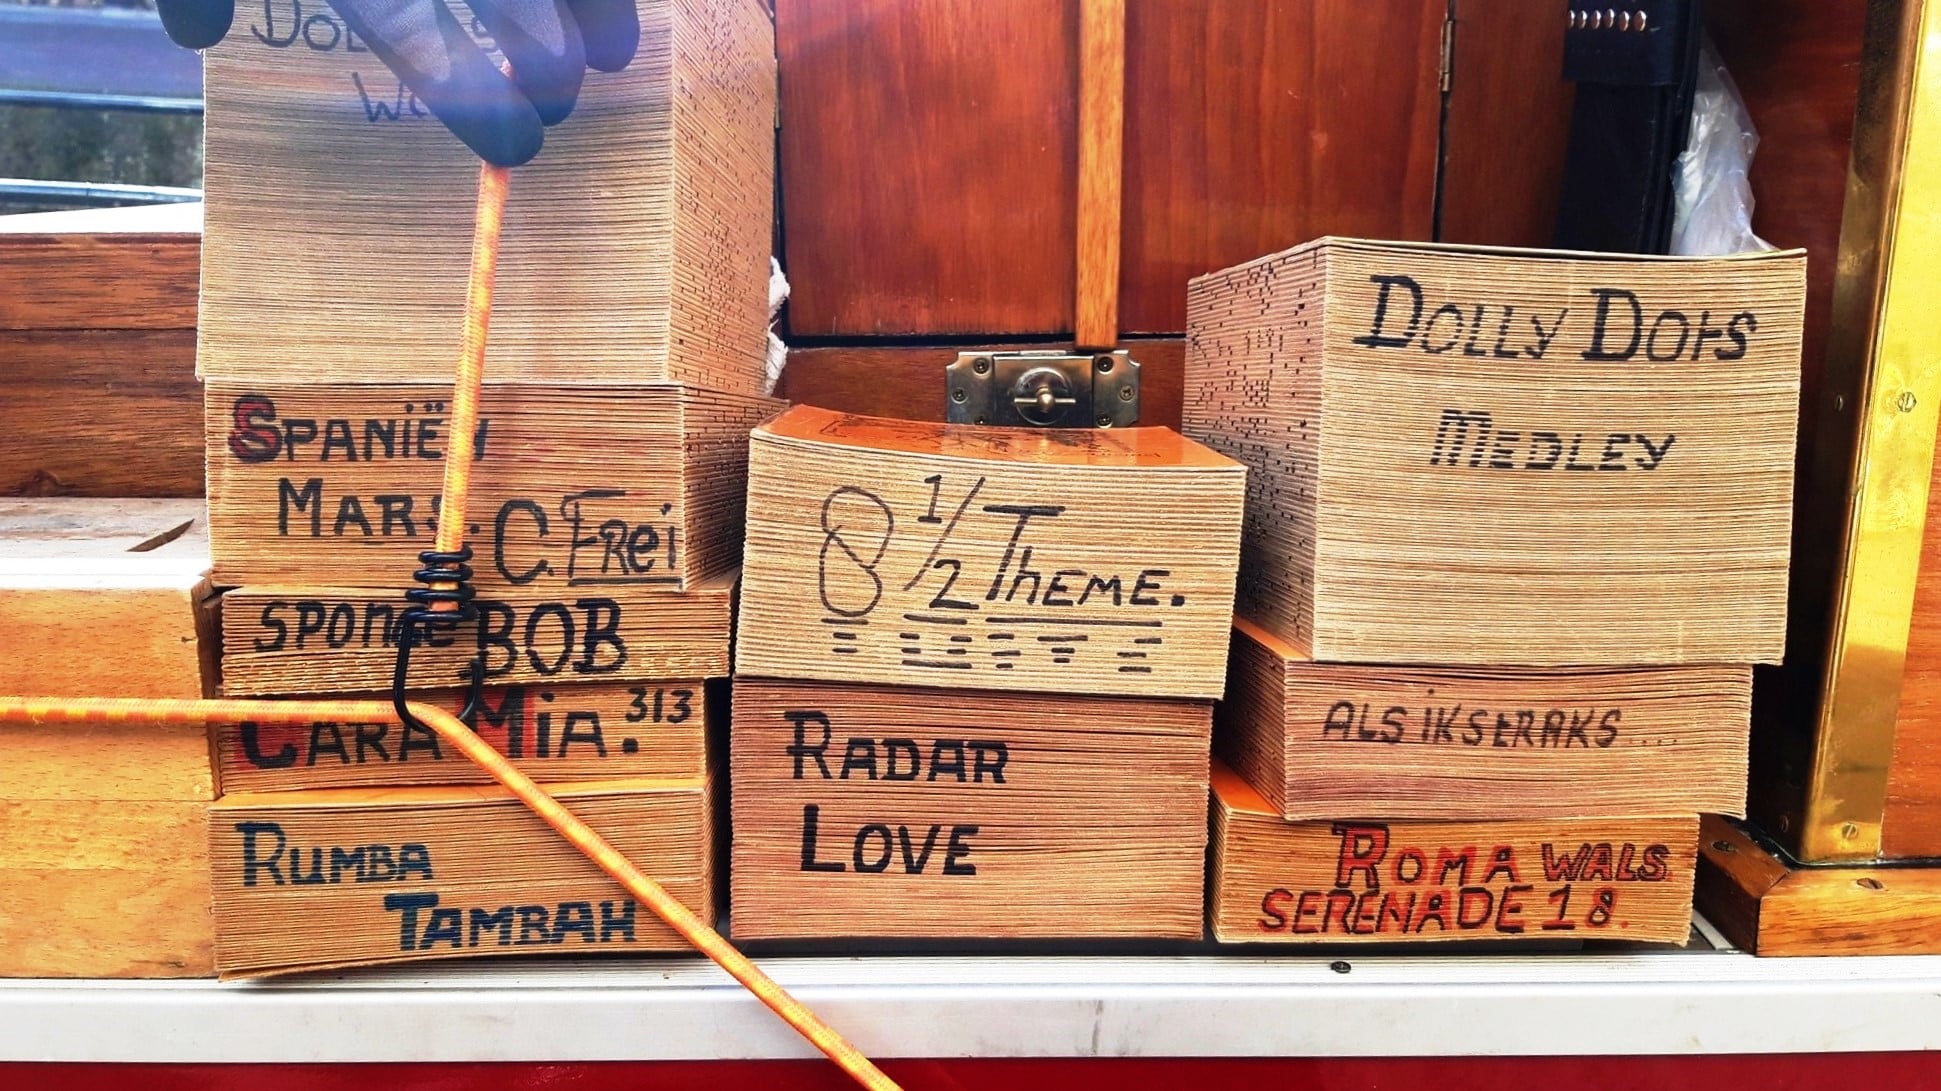 SPANIËN
MARS. C. FREI
SPONGE BOB
CARA MIA. 313
RUMBA
TAMBAH
8 1/2 THEME.
RADAR
LOVE
DOLLY DOTS
MEDLEY
ALS IK STRAKS ....
ROMA WALS.
SERENADE 18.